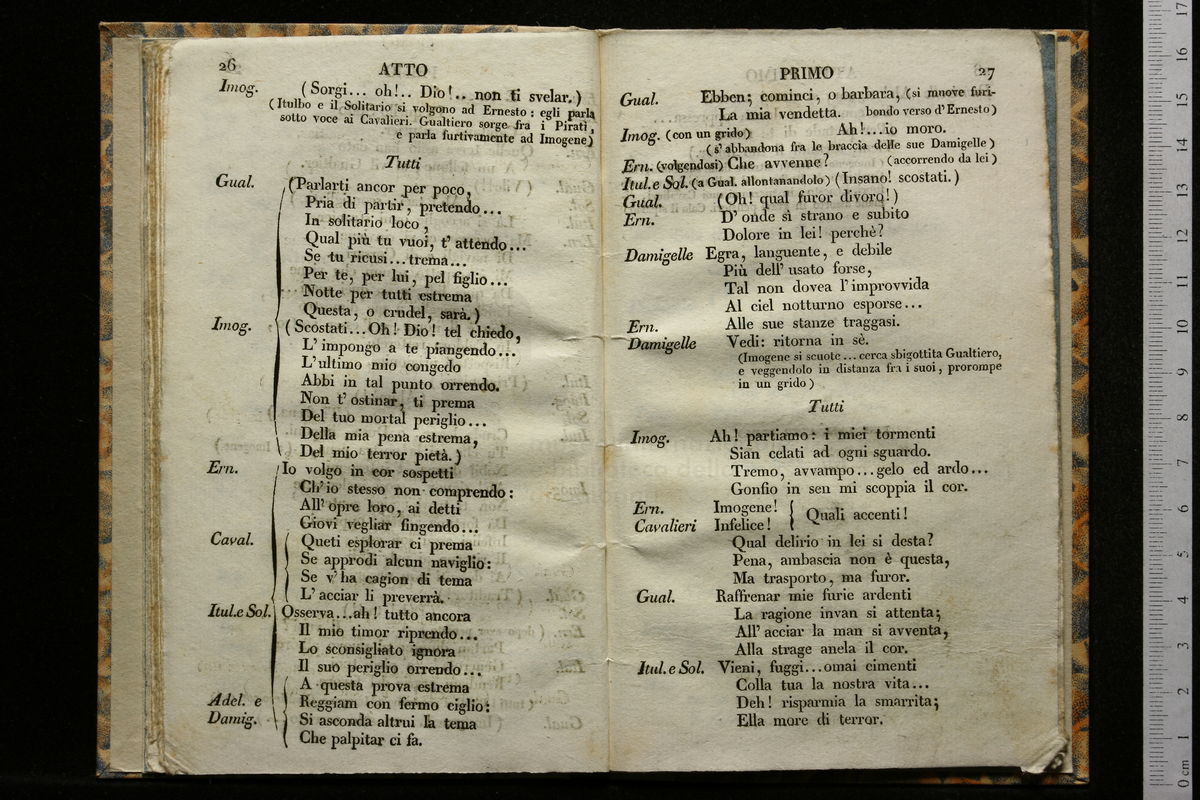 26
ATTO
Imog. (Sorgi... oh!.. Dio!.. non ti svelar.)
(Itulbo e il Solitario si volgono ad Ernesto: egli parla
sotto voce ai Cavalieri. Gualtiero sorge fra i Pirati,
e parla furtivamente ad Imogene)
Tutti
Gual. (Parlarti ancor per poco,
Pria di partir, pretendo...
In solitario loco,
Qual più tu vuoi, t' attendo...
Se tu ricusi...trema...
Per te, per lui, pel figlio...
Notte per tutti estrema
Questa, o crudel, sarà.)
Imog. (Scostati...Oh! Dio! tel chiedo,
L' impongo a te piangendo...
L' ultimo mio congedo
Abbi in tal punto orrendo.
Non t' ostinar, ti prema
Del tuo mortal periglio...
Della mia pena estrema,
Del mio terror pietà.)
Ern. Io volgo in cor sospetti
Ch' io stesso non comprendo:
All' opre loro, ai detti
Giovi vegliar fingendo...
Caval. Queti esplorar ci prema
Se approdi alcun naviglio:
Se v' ha cagion di tema
L' acciar li preverrà.
Itul.e Sol. Osserva...ah! tutto ancora
Il mio timor riprendo...
Lo sconsigliato ignora
Il suo periglio orrendo...
A questa prova estrema
Adel. e Reggiam con fermo ciglio:
Damig. Si asconda altrui la tema
Che palpitar ci fa.
PRIMO
27
Gual. Ebben; cominci, o barbara, (si muove furi-
La mia vendetta. bondo verso d' Ernesto)
Imog. (con un grido) Ah!...io moro.
(s' abbandona fra le braccia delle sue Damigelle)
Ern. (volgendosi) Che avvenne? (accorrendo da lei)
Itul.e Sol. (a Gual. allontanandolo) (Insano! scostati.)
Gual. (Oh! qual furor divoro!)
Ern. D' onde sì strano e subito
Dolore in lei! perchè?
Damigelle Egra, languente, e debile
Più dell' usato forse,
Tal non dovea l' improvvida
Al ciel notturno esporse...
Ern. Alle sue stanze traggasi.
Damigelle Vedi: ritorna in sè.
(Imogene si scuote...cerca sbigottita Gualtiero,
e veggendolo in distanza fra i suoi, prorompe
in un grido)
Tutti
Imog. Ah! partiamo: i miei tormenti
Sian celati ad ogni sguardo.
Tremo, avvampo...gelo ed ardo...
Gonfio in sen mi scoppia il cor.
Ern. Imogene! Quali accenti!
Cavalieri Infelice!
Qual delirio in lei si desta?
Pena, ambascia non è questa,
Ma trasporto, ma furor.
Gual. Raffrenar mie furie ardenti
La ragione invan si attenta;
All' acciar la man si avventa,
Alla strage anela il cor.
Itul. e Sol. Vieni, fuggi...omai cimenti
Colla tua la nostra vita...
Deh! risparmia la smarrita;
Ella more di terror.
0 cm 1 2 3 4 5 6 7 8 9 10 11 12 13 14 15 16 17